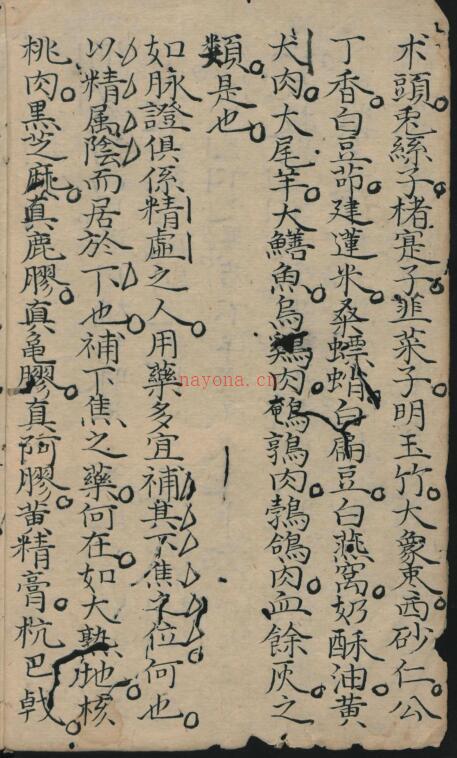 朮頭兎絲子楮寔子韮菜子明玉竹大象東西砂仁公
丁香白豆茆建蓮米桑螵蛸白扁豆白燕窩奶酥油黄
犬肉大尾羊大鱔魚烏鷄肉鵪鶉肉鵓鴿肉血餘灰之
類是也
如脉證俱係精虛之人用藥多宜補其下焦之位何也
以精属陰而居於下也補下焦之藥何在如大熟地核
桃肉黒芝麻真鹿膠真龜膠真阿膠黄精膏杭巴戟
nayona.cn